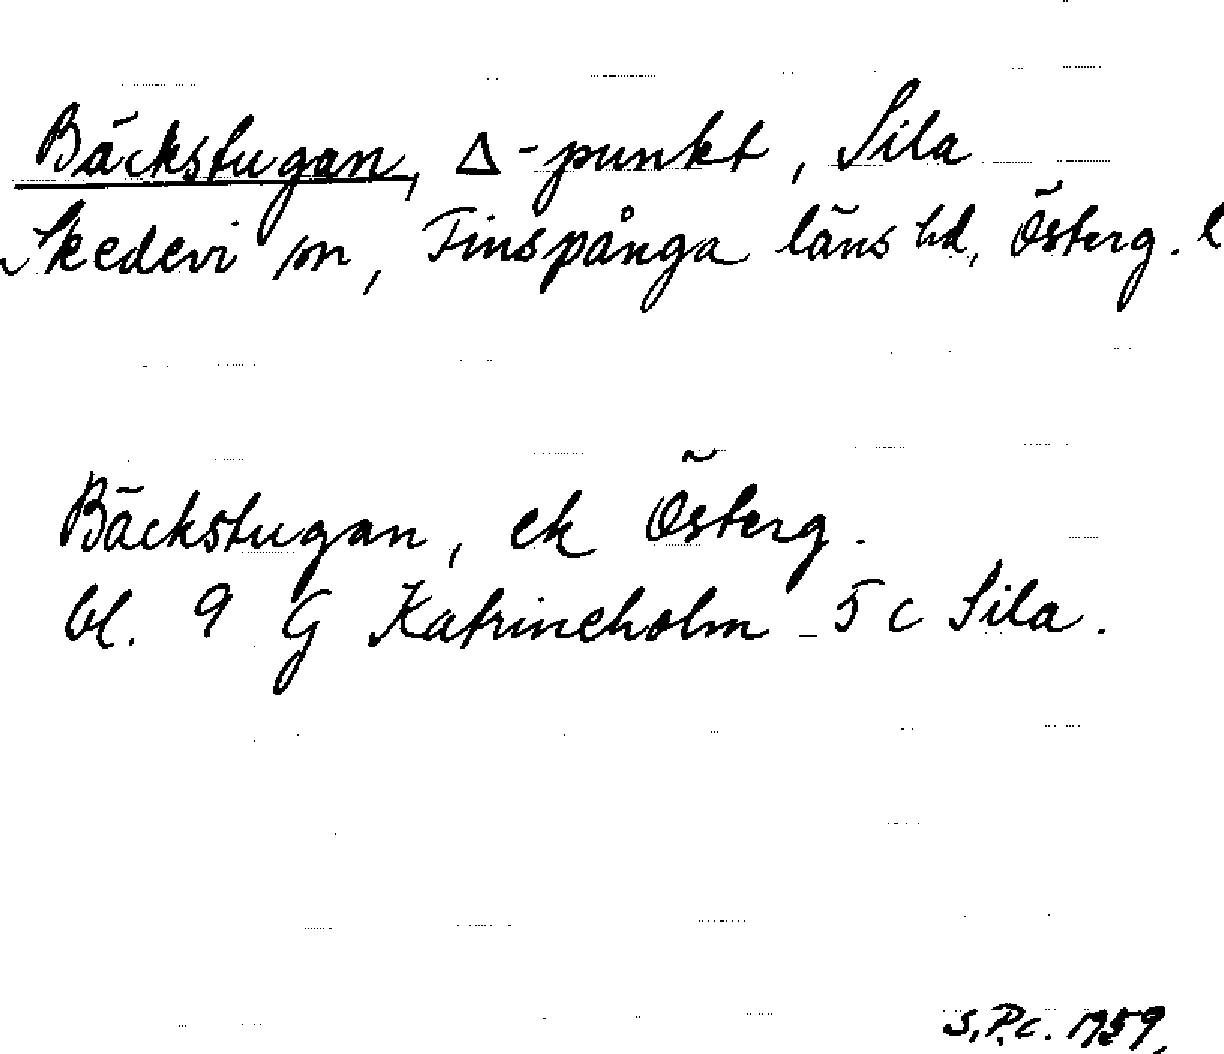 Bäckstugan, Δ-punkt, Sila
Skedevi sn, Finspånga läns hd, Österg. l
Bäckstugan, ek Österg.
bl. 9 G Katrineholm 5 c Sila.
S.P.c. 1959.